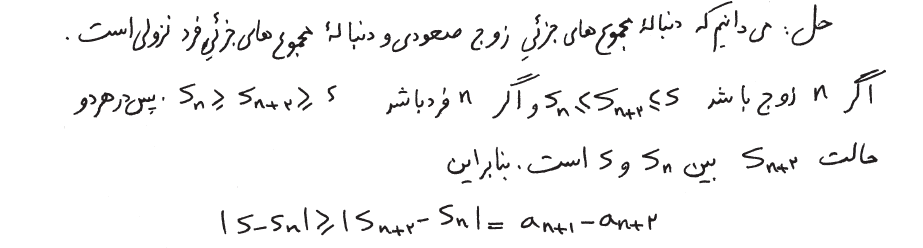 حل: می دانیم که دنبالهٔ مجموع های جزئی زوج صعودی و دنبالهٔ مجموع های جزئی فرد نزولی است.
اگر n زوج باشد Sn ⩽ Sn+۲ ⩽ S و اگر n فرد باشد Sn ⩾ Sn+۲ ⩾ S. پس در هر دو
حالت Sn+۲ بین Sn و S است. بنابراین
|S-Sn| ⩾ |Sn+۲ - Sn| = an+1 - an+۲